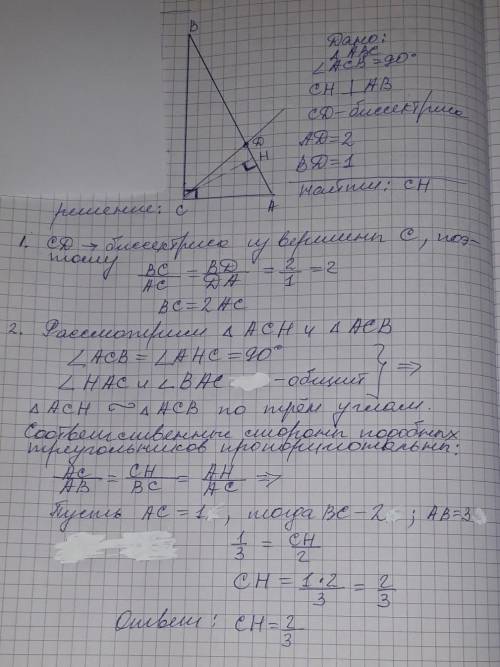 В
Дано:
△ ABC
∠ACB = 90°
CH ⊥ AB
CD - биссектриса
AD = 2
BD = 1
найти: CH
D
H
C
A
решение:
1. CD → биссектриса из вершины C, поэ-
тому
BC/AC = BD/DA = 2/1 = 2
BC = 2AC
2. Рассмотрим △ ACH и △ ACB
∠ACB = ∠AHC = 90°
∠HAC и ∠BAC - общий } ⇒
△ ACH ∼ △ ACB по трём углам.
Соответственные стороны подобных
треугольников пропорциональны:
AC/AB = CH/BC = AH/AC ⇒
Пусть AC = 1, тогда BC - 2 ; AB = 3
1/3 = CH/2
CH = 1·2/3 = 2/3
Ответ: CH = 2/3